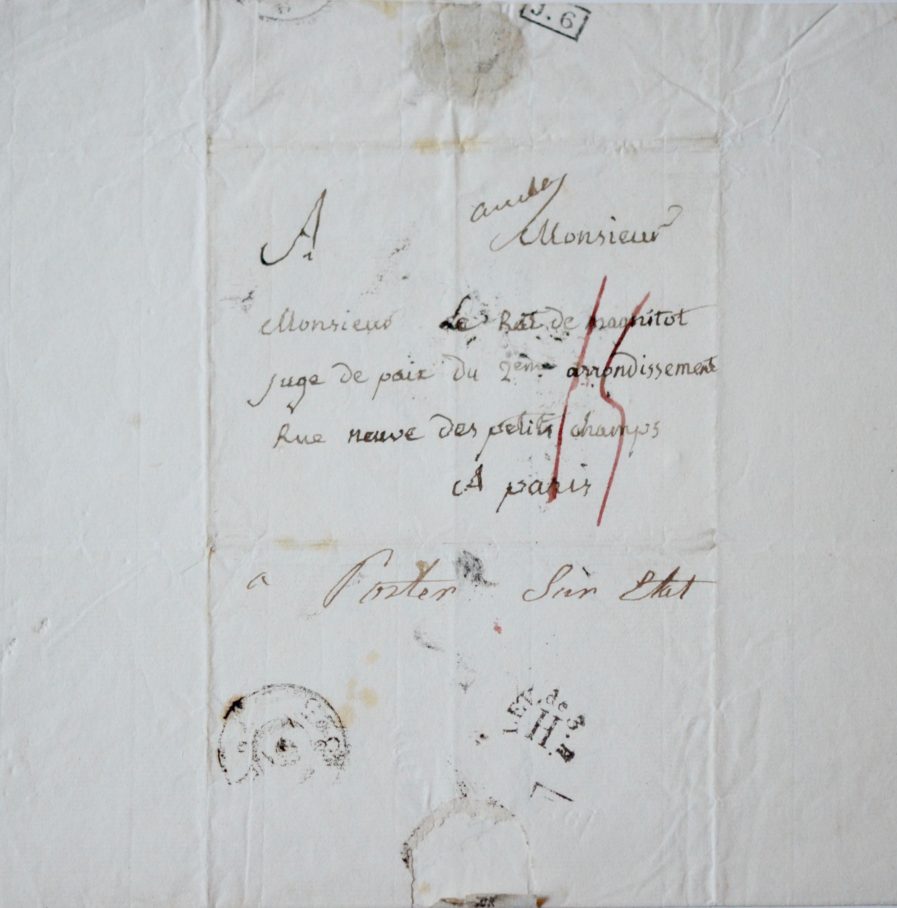 J. 6
A Monsieur
Monsieur Le Rat de magnitot
Juge de paix du 2eme arrondissement
15
Rue neuve des petits champs
A paris
a Poster Sùr Etat
LEV. de 3.
H.
7